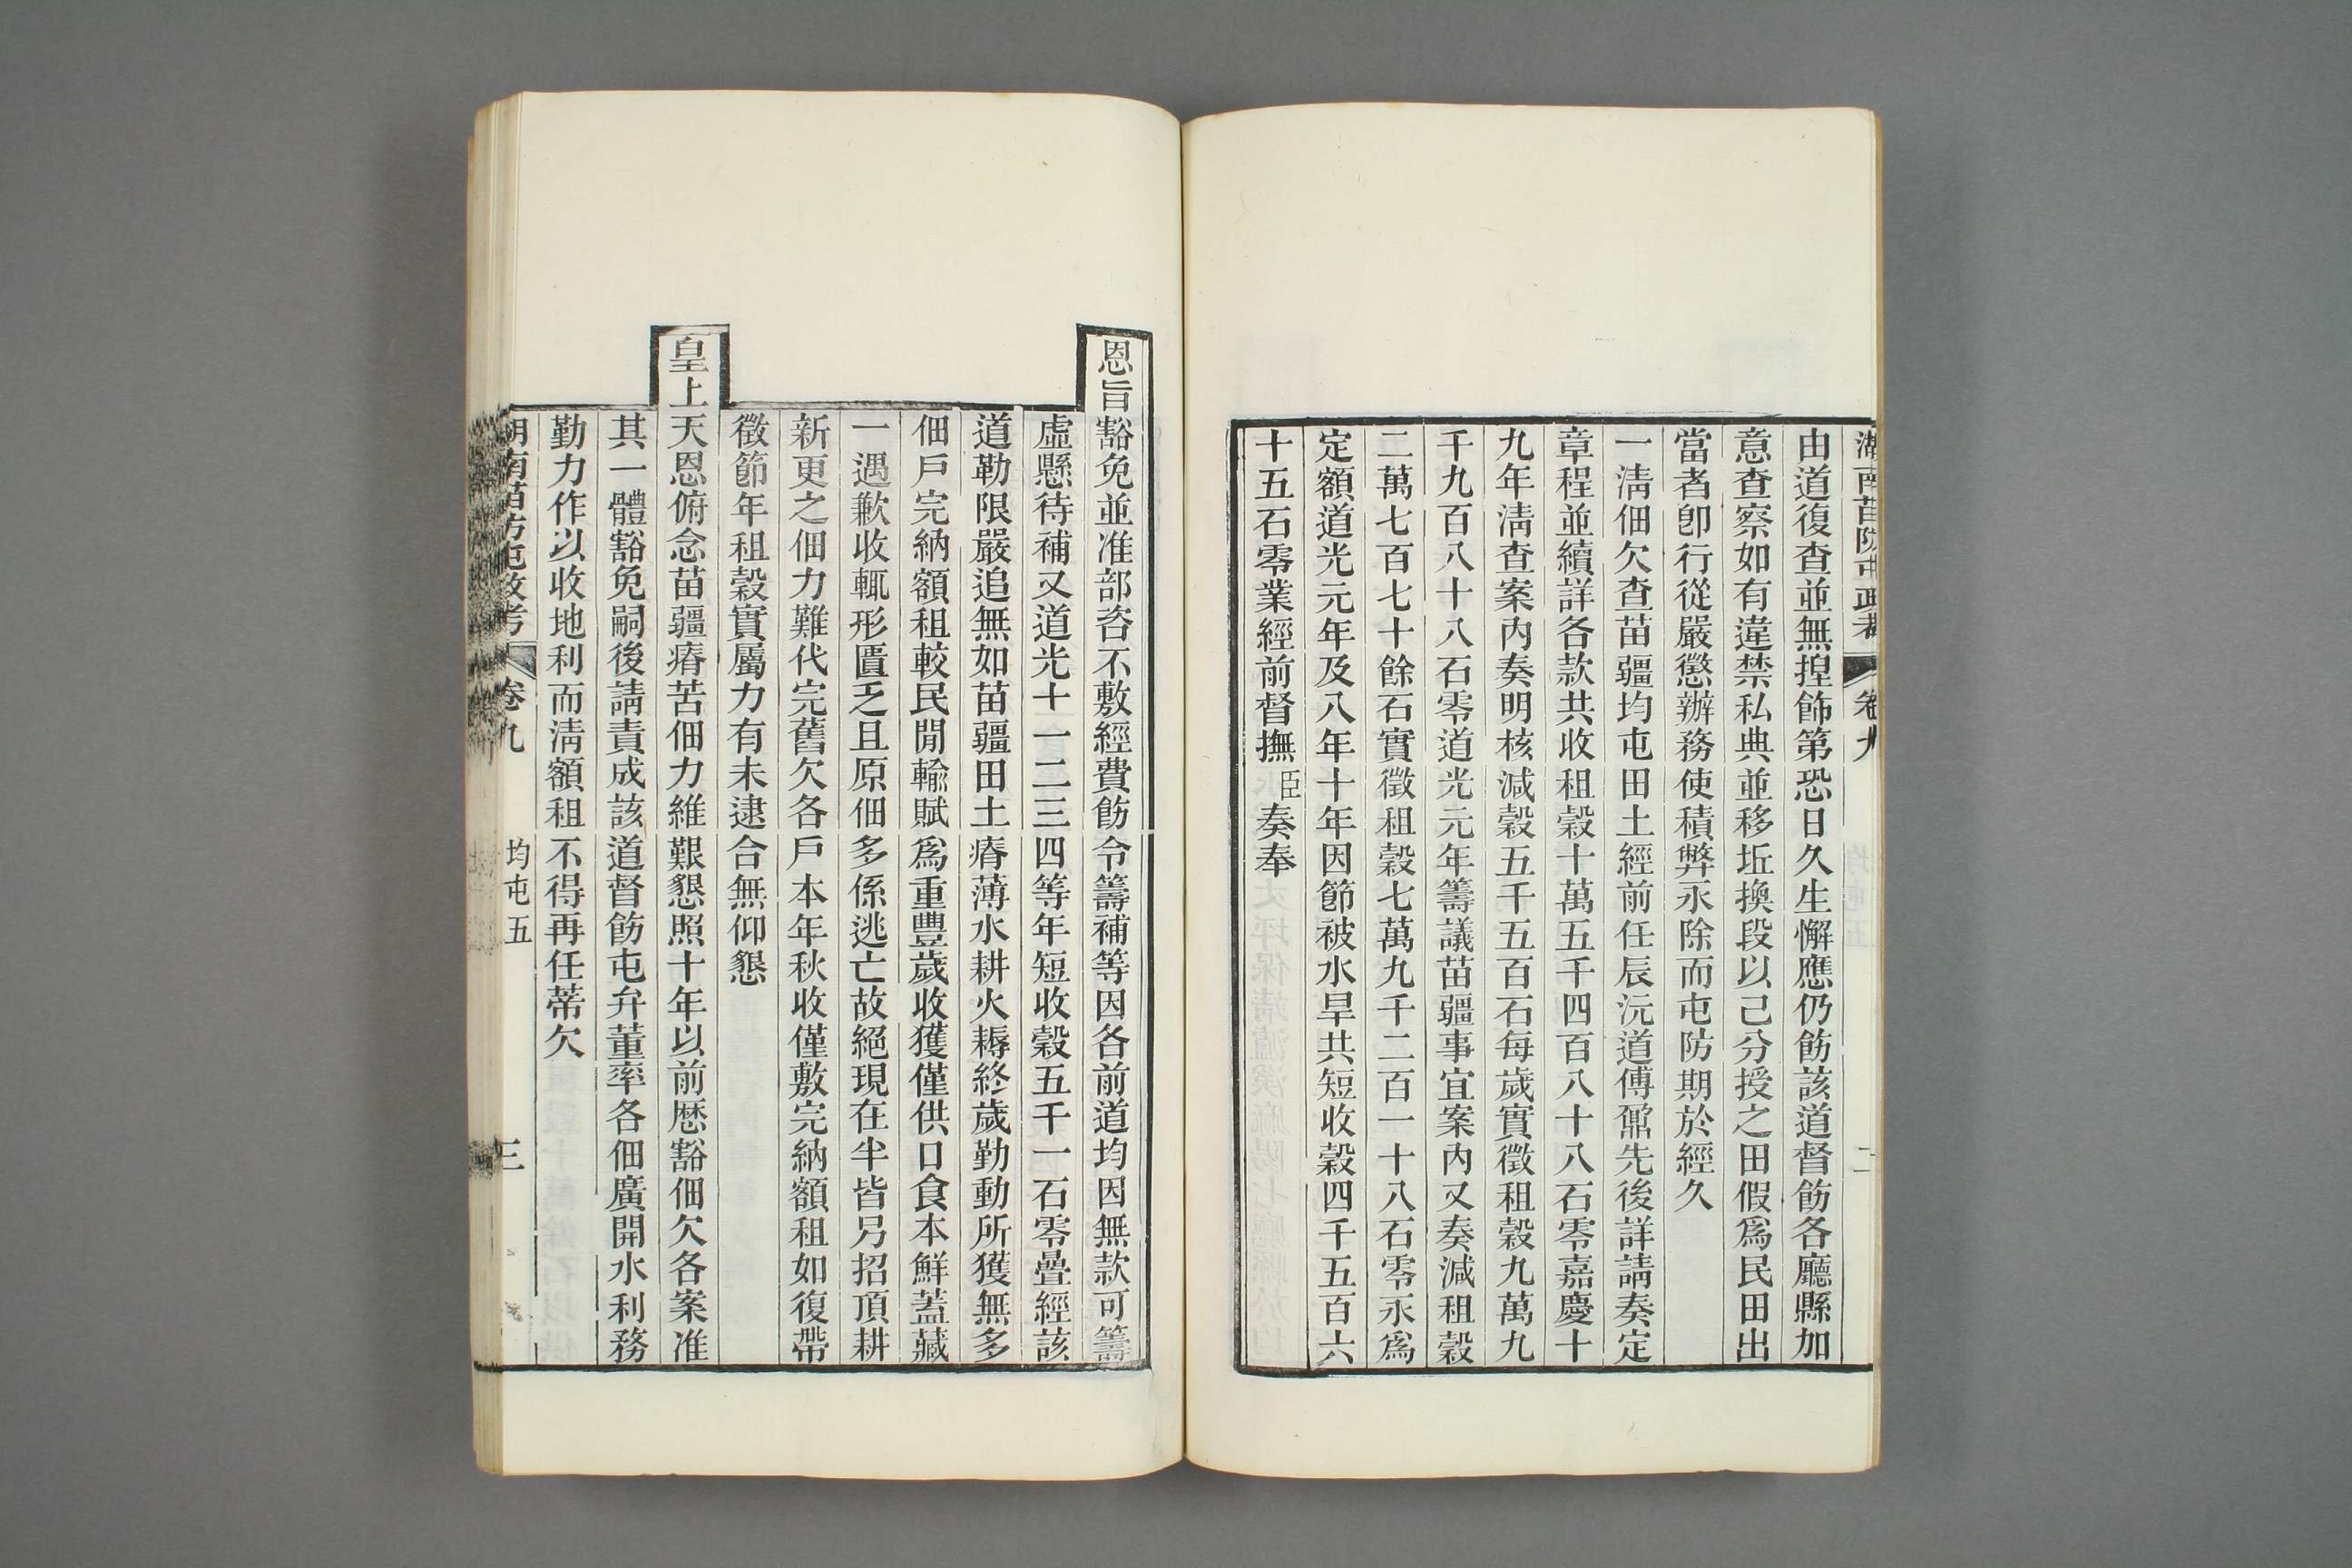 湖南苗防屯政考 卷九 二
由道復查並無揑飾第恐日久生懈應仍飭該道督飭各廳縣加
意查察如有違禁私典並移坵換段以己分授之田假爲民田出
當者卽行從嚴懲辦務使積弊永除而屯防期於經久
一淸佃欠查苗疆均屯田土經前任辰沅道傅鼐先後詳請奏定
章程並續詳各款共收租穀十萬五千四百八十八石零嘉慶十
九年淸查案內奏明核減穀五千五百石每歲實徵租穀九萬九
千九百八十八石零道光元年籌議苗疆事宜案內又奏減租穀
二萬七百七十餘石實徵租穀七萬九千二百一十八石零永爲
定額道光元年及八年十年因節被水旱共短收穀四千五百六
十五石零業經前督撫臣奏奉
恩旨豁免並准部咨不敷經費飭令籌補等因各前道均因無款可籌
虛懸待補又道光十一二三四等年短收穀五千一石零疊經該
道勒限嚴追無如苗疆田土瘠薄水耕火耨終歲勤動所獲無多
佃戶完納額租較民閒輸賦爲重豐歲收獲僅供口食本鮮蓋藏
一遇歉收輒形匱乏且原佃多係逃亡故絕現在半皆另招頂耕
新更之佃力難代完舊欠各戶本年秋收僅敷完納額租如復帶
徵節年租穀實屬力有未逮合無仰懇
皇上天恩俯念苗疆瘠苦佃力維艱懇照十年以前歷豁佃欠各案准
其一體豁免嗣後請責成該道督飭屯弁董率各佃廣開水利務
勤力作以收地利而淸額租不得再任蒂欠
湖南苗防屯政考 卷九 均屯五 三